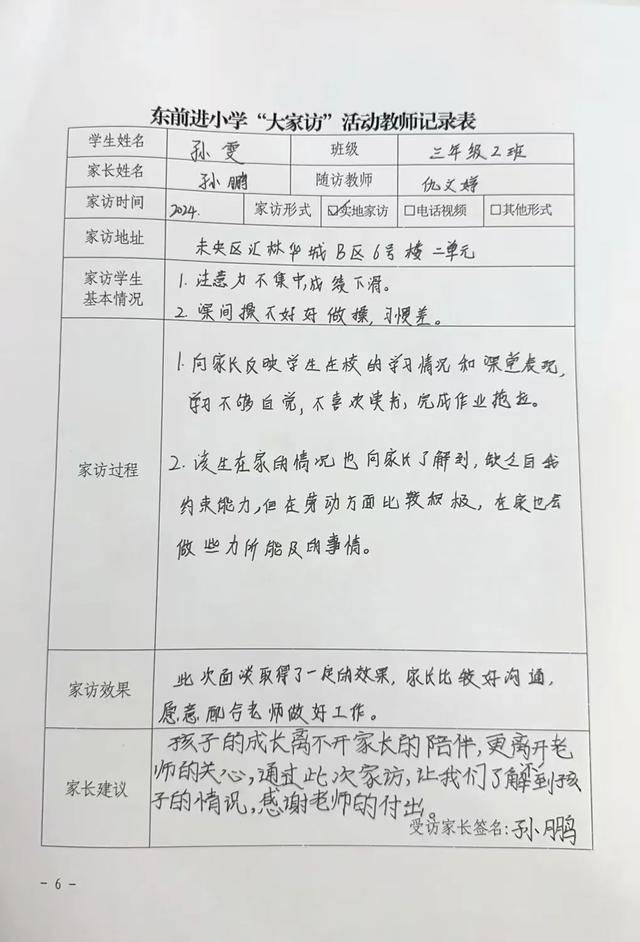 东前进小学“大家访”活动教师记录表
学生姓名 孙雯 班级 三年级2班
家长姓名 孙鹏 随访教师 仇文婷
家访时间 2024. 家访形式 ☑实地家访 □电话视频 □其他形式
家访地址 未央区汇林华城B区6号楼二单元
家访学生基本情况 1. 注意力不集中,成绩下滑。
2. 课间操不好好做操,习惯差。
家访过程 1. 向家长反映学生在校的学习情况和课堂表现,
学习不够自觉,不喜欢读书,完成作业拖拉。
2. 该生在家的情况也向家长了解到,缺乏自我
约束能力,但在劳动方面比较积极,在家也会
做些力所能及的事情。
家访效果 此次面谈取得了一定的效果,家长比较好沟通,
愿意配合老师做好工作。
家长建议 孩子的成长离不开家长的陪伴,更离不开老
师的关心,通过此次家访,让我们了解到孩
子的情况,感谢老师的付出。
受访家长签名:孙鹏
- 6 -